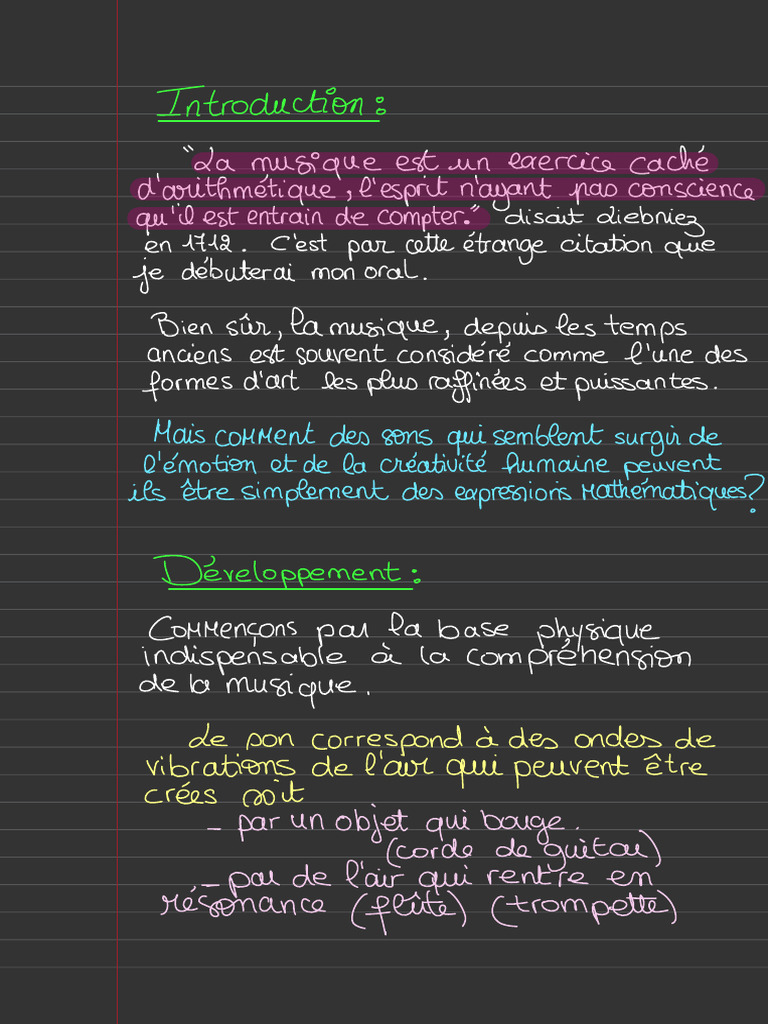 Introduction :
"La musique est un exercice caché
d'arithmétique, l'esprit n'ayant pas conscience
qu'il est entrain de compter." disait Liebniez
en 1712. C'est par cette étrange citation que
je débuterai mon oral.
Bien sûr, la musique, depuis les temps
anciens est souvent considéré comme l'une des
formes d'art les plus raffinées et puissantes.
Mais comment des sons qui semblent surgir de
l'émotion et de la créativité humaine peuvent
ils être simplement des expressions mathématiques ?
Développement :
Commençons par la base physique
indispensable à la compréhension
de la musique.
Le son correspond à des ondes de
vibrations de l'air qui peuvent être
crées soit
- par un objet qui bouge.
(corde de guitare)
- par de l'air qui rentre en
résonance (flûte) (trompette)